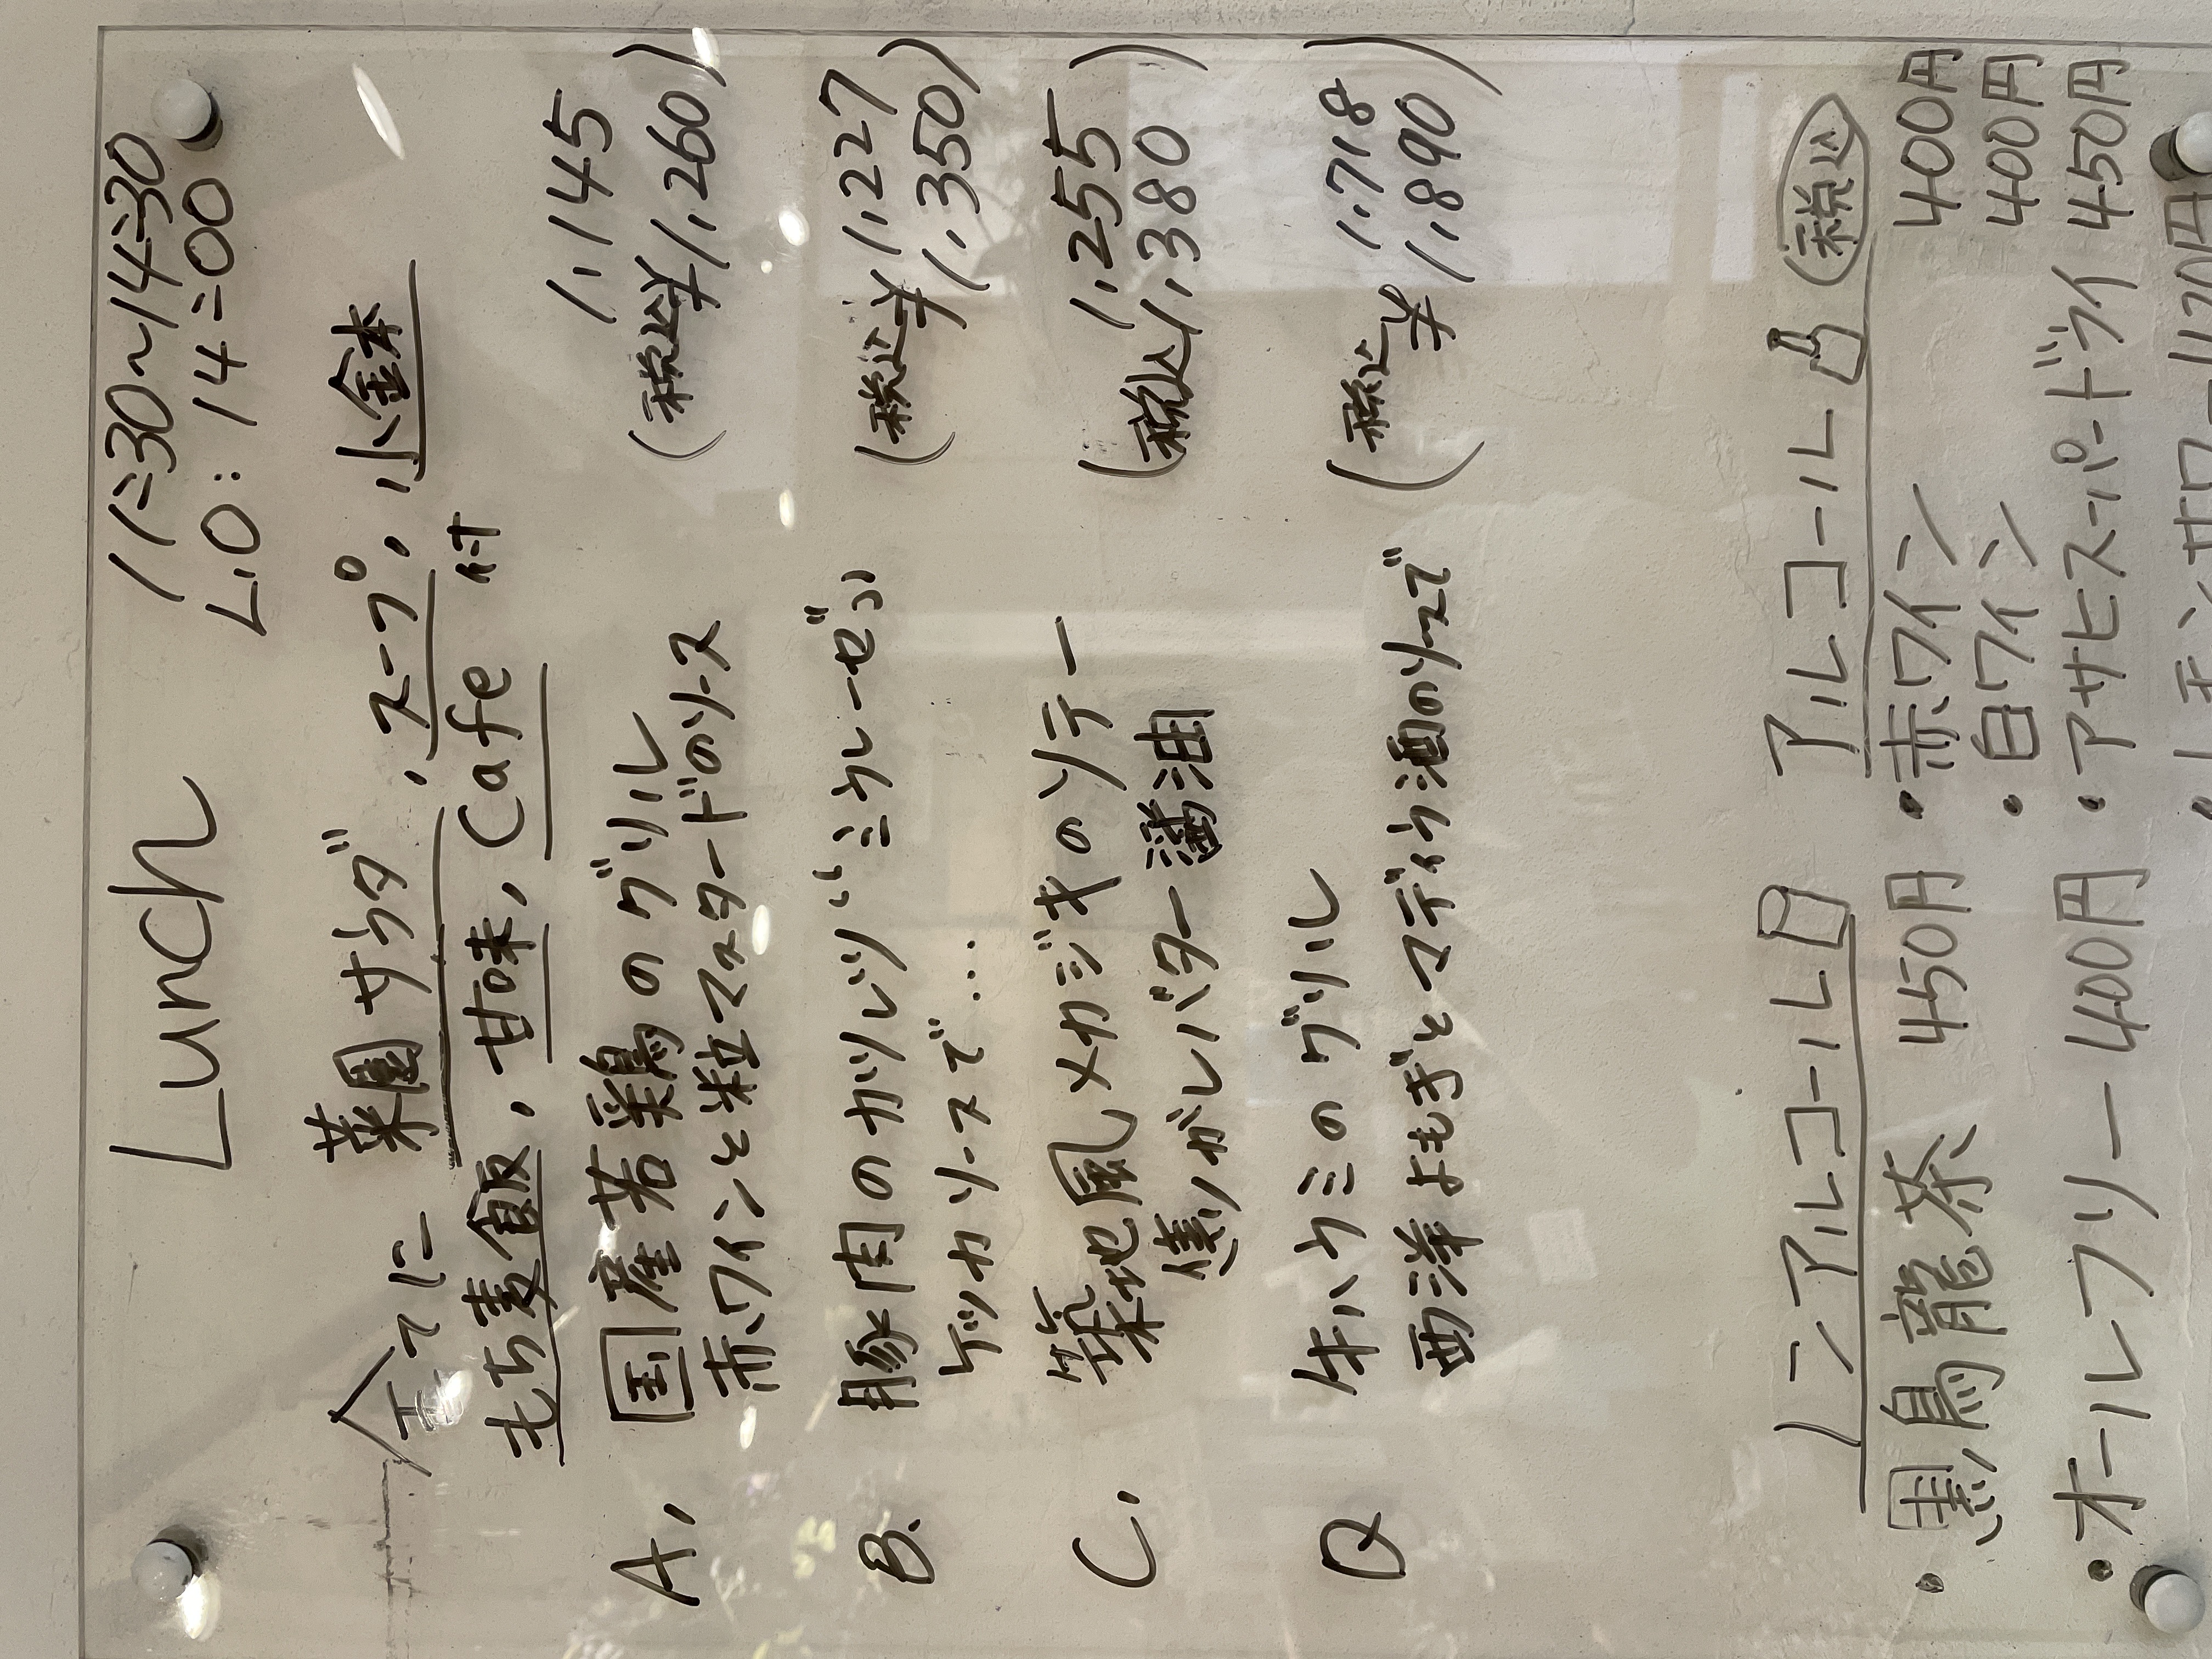 Lunch 11:30~14:30
L.O: 14:00
全てに 菜園サラダ, スープ, 小鉢
もち麦飯, 甘味, Cafe 付
A. 国産若鶏のグリル 1,145
赤ワインと粒マスタードのソース (税込¥1,260)
B. 豚肉のカツレツ"ミラレーゼ" 1,227
ケッカソースで... (税込¥1,350)
C. 築地風メカジキのソテー 1,255
焦がしバター醤油 (税込1,380)
D 牛ハラミのグリル 1,718
西洋よもぎとマディラ酒のソースで (税込¥1,890)
ノンアルコール アルコール (税込)
・黒烏龍茶 450円 ・赤ワイン 400円
・白ワイン 400円
・オールフリー 400円 ・アサヒスーパードライ 450円